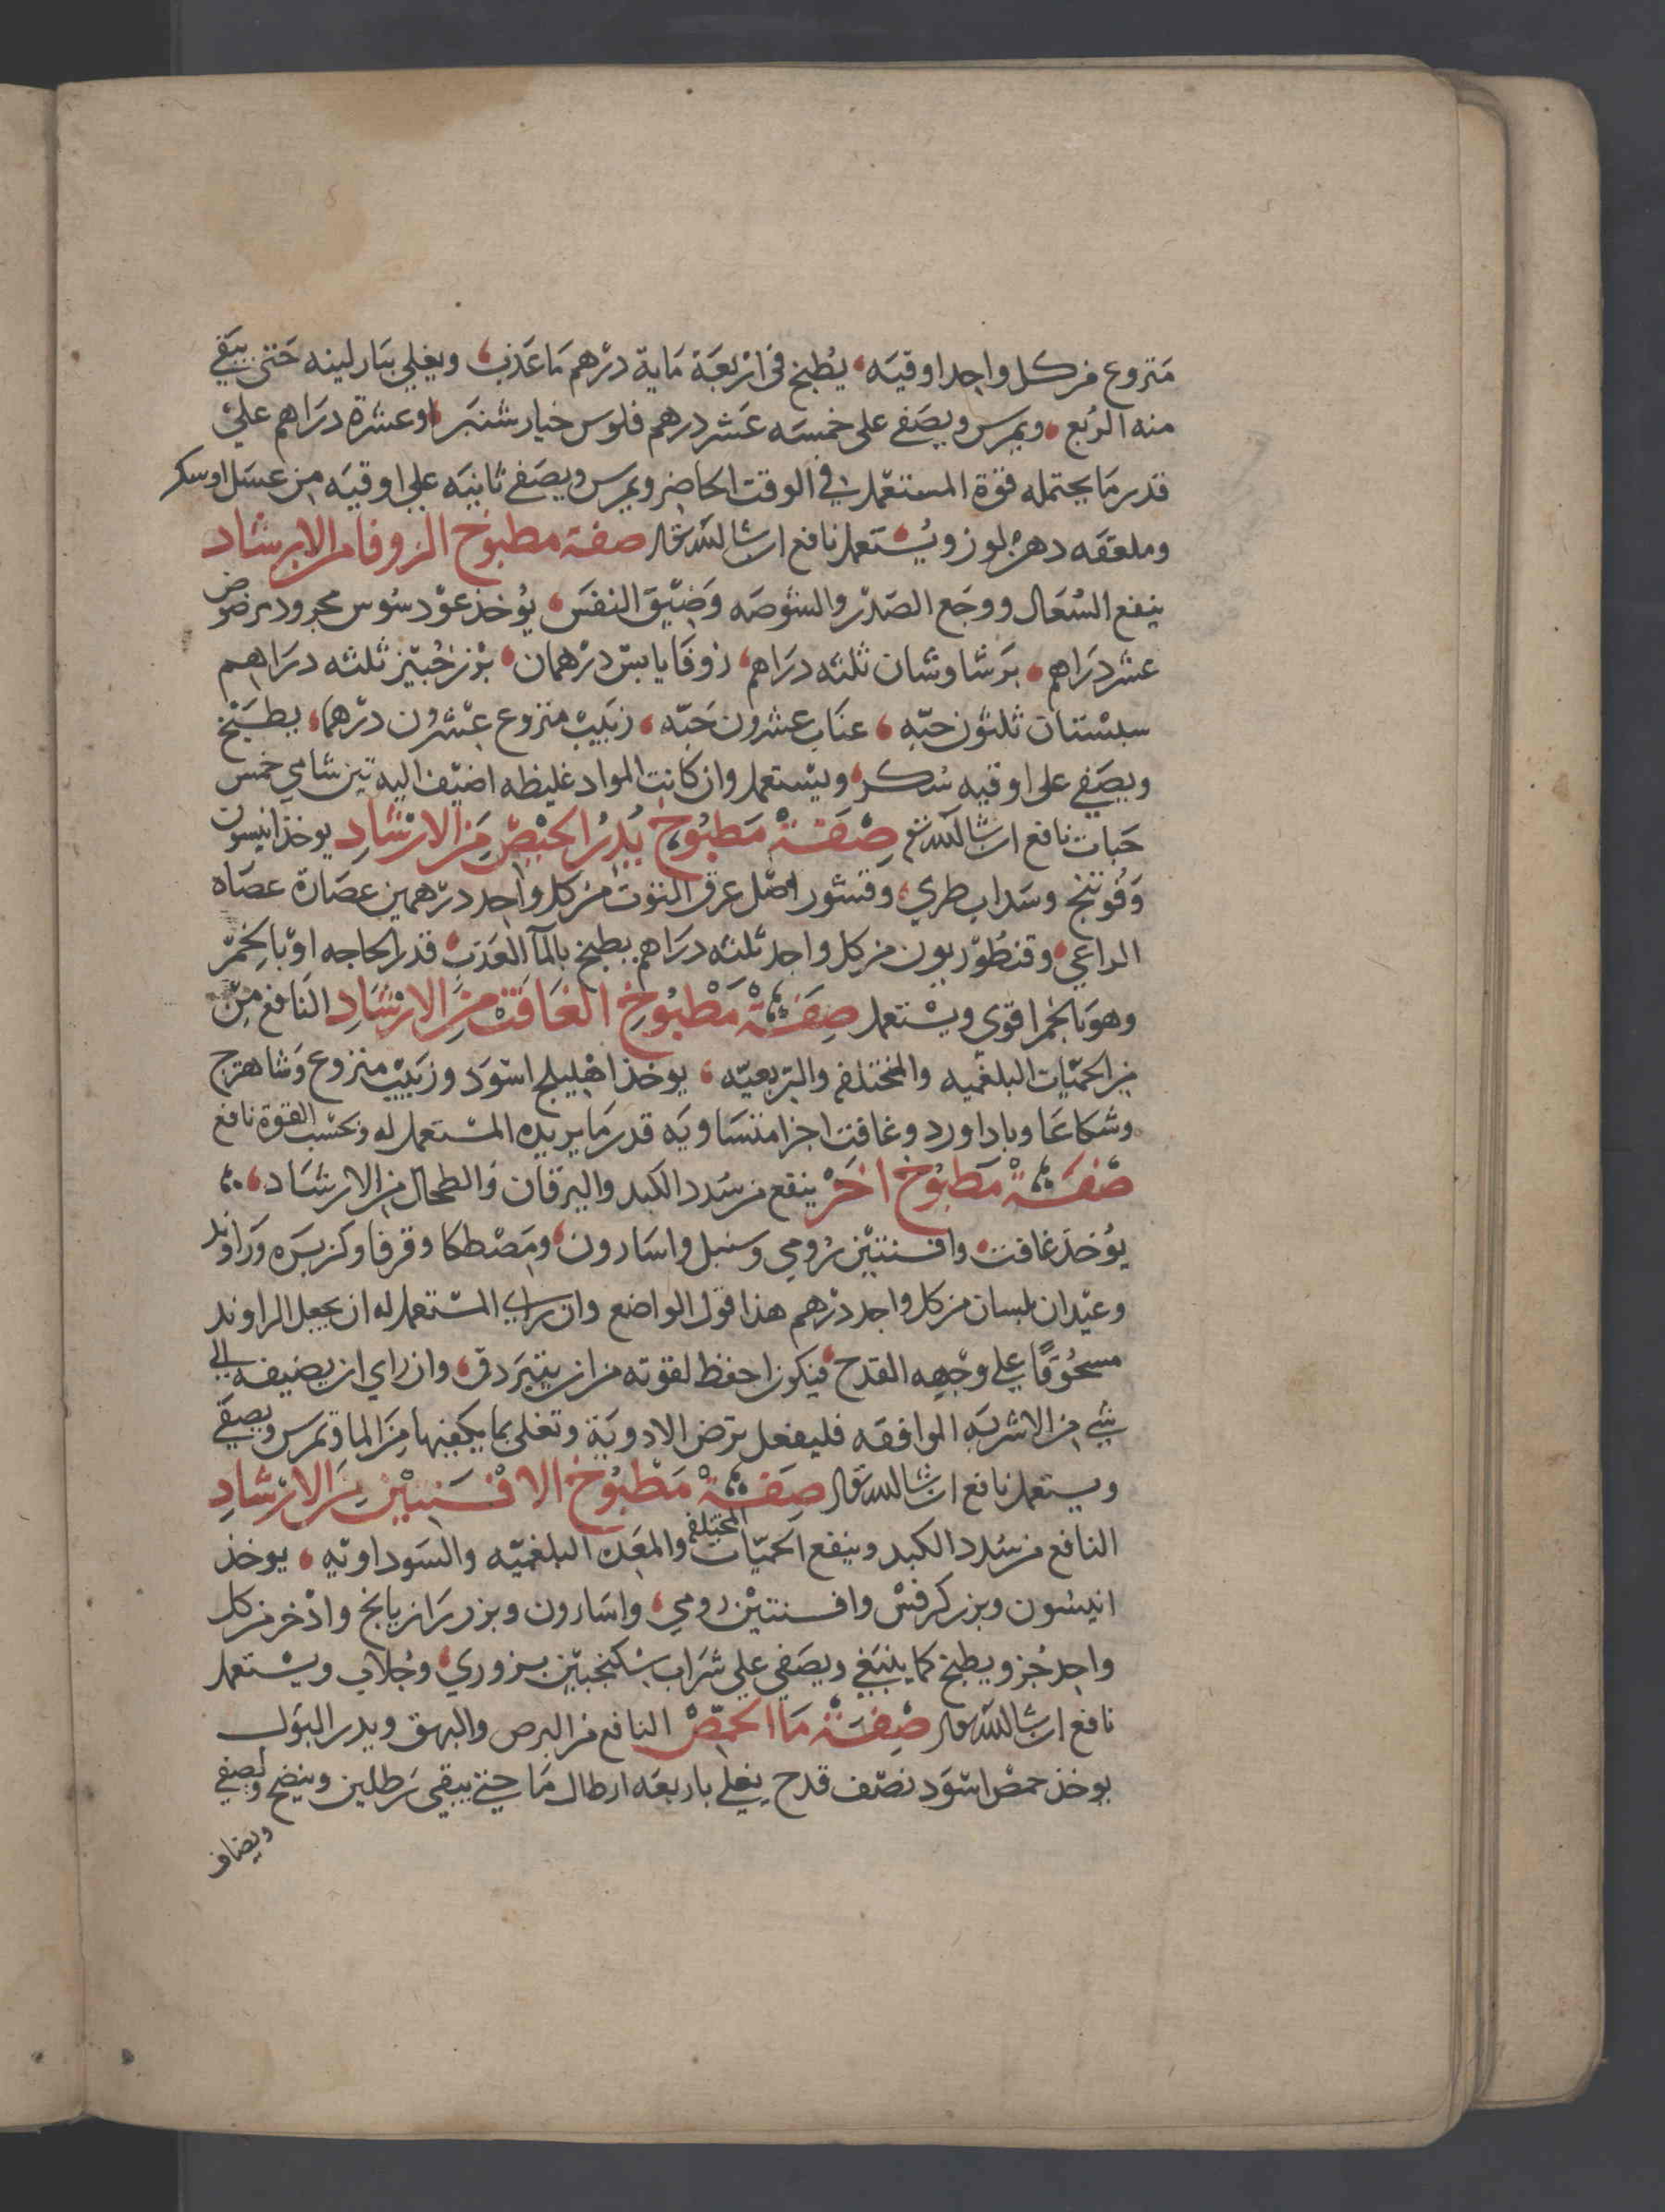 منزوع من كل واحد اوقيه يُطبخ في اربعَة مَاية درهم مَا عَذب ويغلي بنار لينه حَتى يبقي
منه الرُبع ويمرس ويصَفي على خمسَه عَشر درهم فلوس خيار شنبَر او عشرة درَاهم علي
قدر مَا يحتمله قوة المستعمل في الوقت الحاضر ويمرس ويصَفي ثانيَه علي اوقيَه من عسَل او سكر
وملعقه دهن لوز ويُستعمل نافع ان شا الله تعالى صفة مطبوخ الزوفا من الارشاد
ينفع السُعَال ووجَع الصَدر والشوصَه وَضيق النفَس يُوخذ عوْد سُوس مجرود مرضوض
عشر درَاهم بَرشاوشان ثلثه درَاهم زوفَا يابسْ درْهمان بزر خُبيّز ثلثه درَاهم
سبستان ثلثون حبّه عنَاب عشرون حَبّه زبَيبْ منزوع عشرون درْهمَا يطبَخ
ويصَفي على اوقيه سُكر ويستعمل وان كانت المواد غليظه اضيف اليه تين شامي خمس
حَبات نافع ان شا الله تعالى صِفَة مَطبُوخ يُدرُ الحيْضَ مَن الارشَادِ يوخذ انيسون
وَفُوتنج وسَداب طري وقشور اصْل عرق التوت من كل واحد درهمين عصَارة عصَاه
الراعي وقنطُوريون من كل واحد ثلثه درَاهم يطبخ بالمآ العَذب قدر الحاجه او بالخمْر
وهوَ بالخمر اقوي ويستعمل صِفَة مَطْبُوخ الغَافت مِنَ الارْشَادِ النَافع مِنْ
من الحميّات البلغميه والمختلفه والربعيّه يوخذ اهْليلج اسْوَد وزبَيبْ منزوع وَشاهترج
وشكاعَا وباداورد وغافت اجزا متسَاويَه قدر مَا يريده المستعمل له وبحسْب القوة نافع
صفَة مَطبُوخ اخَرْ ينفع من سُدد الكبد واليرقان وَالطحال من الارشَاد
يوُخذ غافت وافسنتيْن رُومي وسنبل واسَارون ومَصْطكا وقرفا وكزبَره وَراوند
وعيْدان بلسان من كل واحد درهم هذا قول الواضع وان راي المسْتعمل له ان يجعل الراوند
مسحُوقًا علي وجْهه القدح فيكون احفظ لقوته من ان يتَبرَد في وان راي ان يضيفه الي
شي من الاشربَه الموافقه فليفعل ترض الادويَة وتغلي بما يكفيها مِنَ الما وتمرس ويصفَي
ويستعمل نافع ان شا الله تعالى صفَة مَطبُوخ الافسَنتيْن مِنَ الارْشادِ
النافع من سُدد الكبد وينفع الحميّات المختلفه والمعَده البلغميّه والسَوداويّه يوخذ
انيسُون وبزر كرفسْ وافسنتيْن رومي واسَارون وبزر رَازيانج واذخر من كل
واحد جُزو ويطبخ كما ينبَغي ويصَفي علي شرَاب سكنجبيْن بزوري وجُلاب ويستعمل
نافع ان شا الله تعالى صِفَة مَا الحمّصْ النافع من البرص والبهق ويدر البوَل
يوخذ حمصْ اسْوَد نصْف قدح يغلي باربعَه ارطال مَا حتي يبقي رَطلين وينضج ويصفي
ويضاف